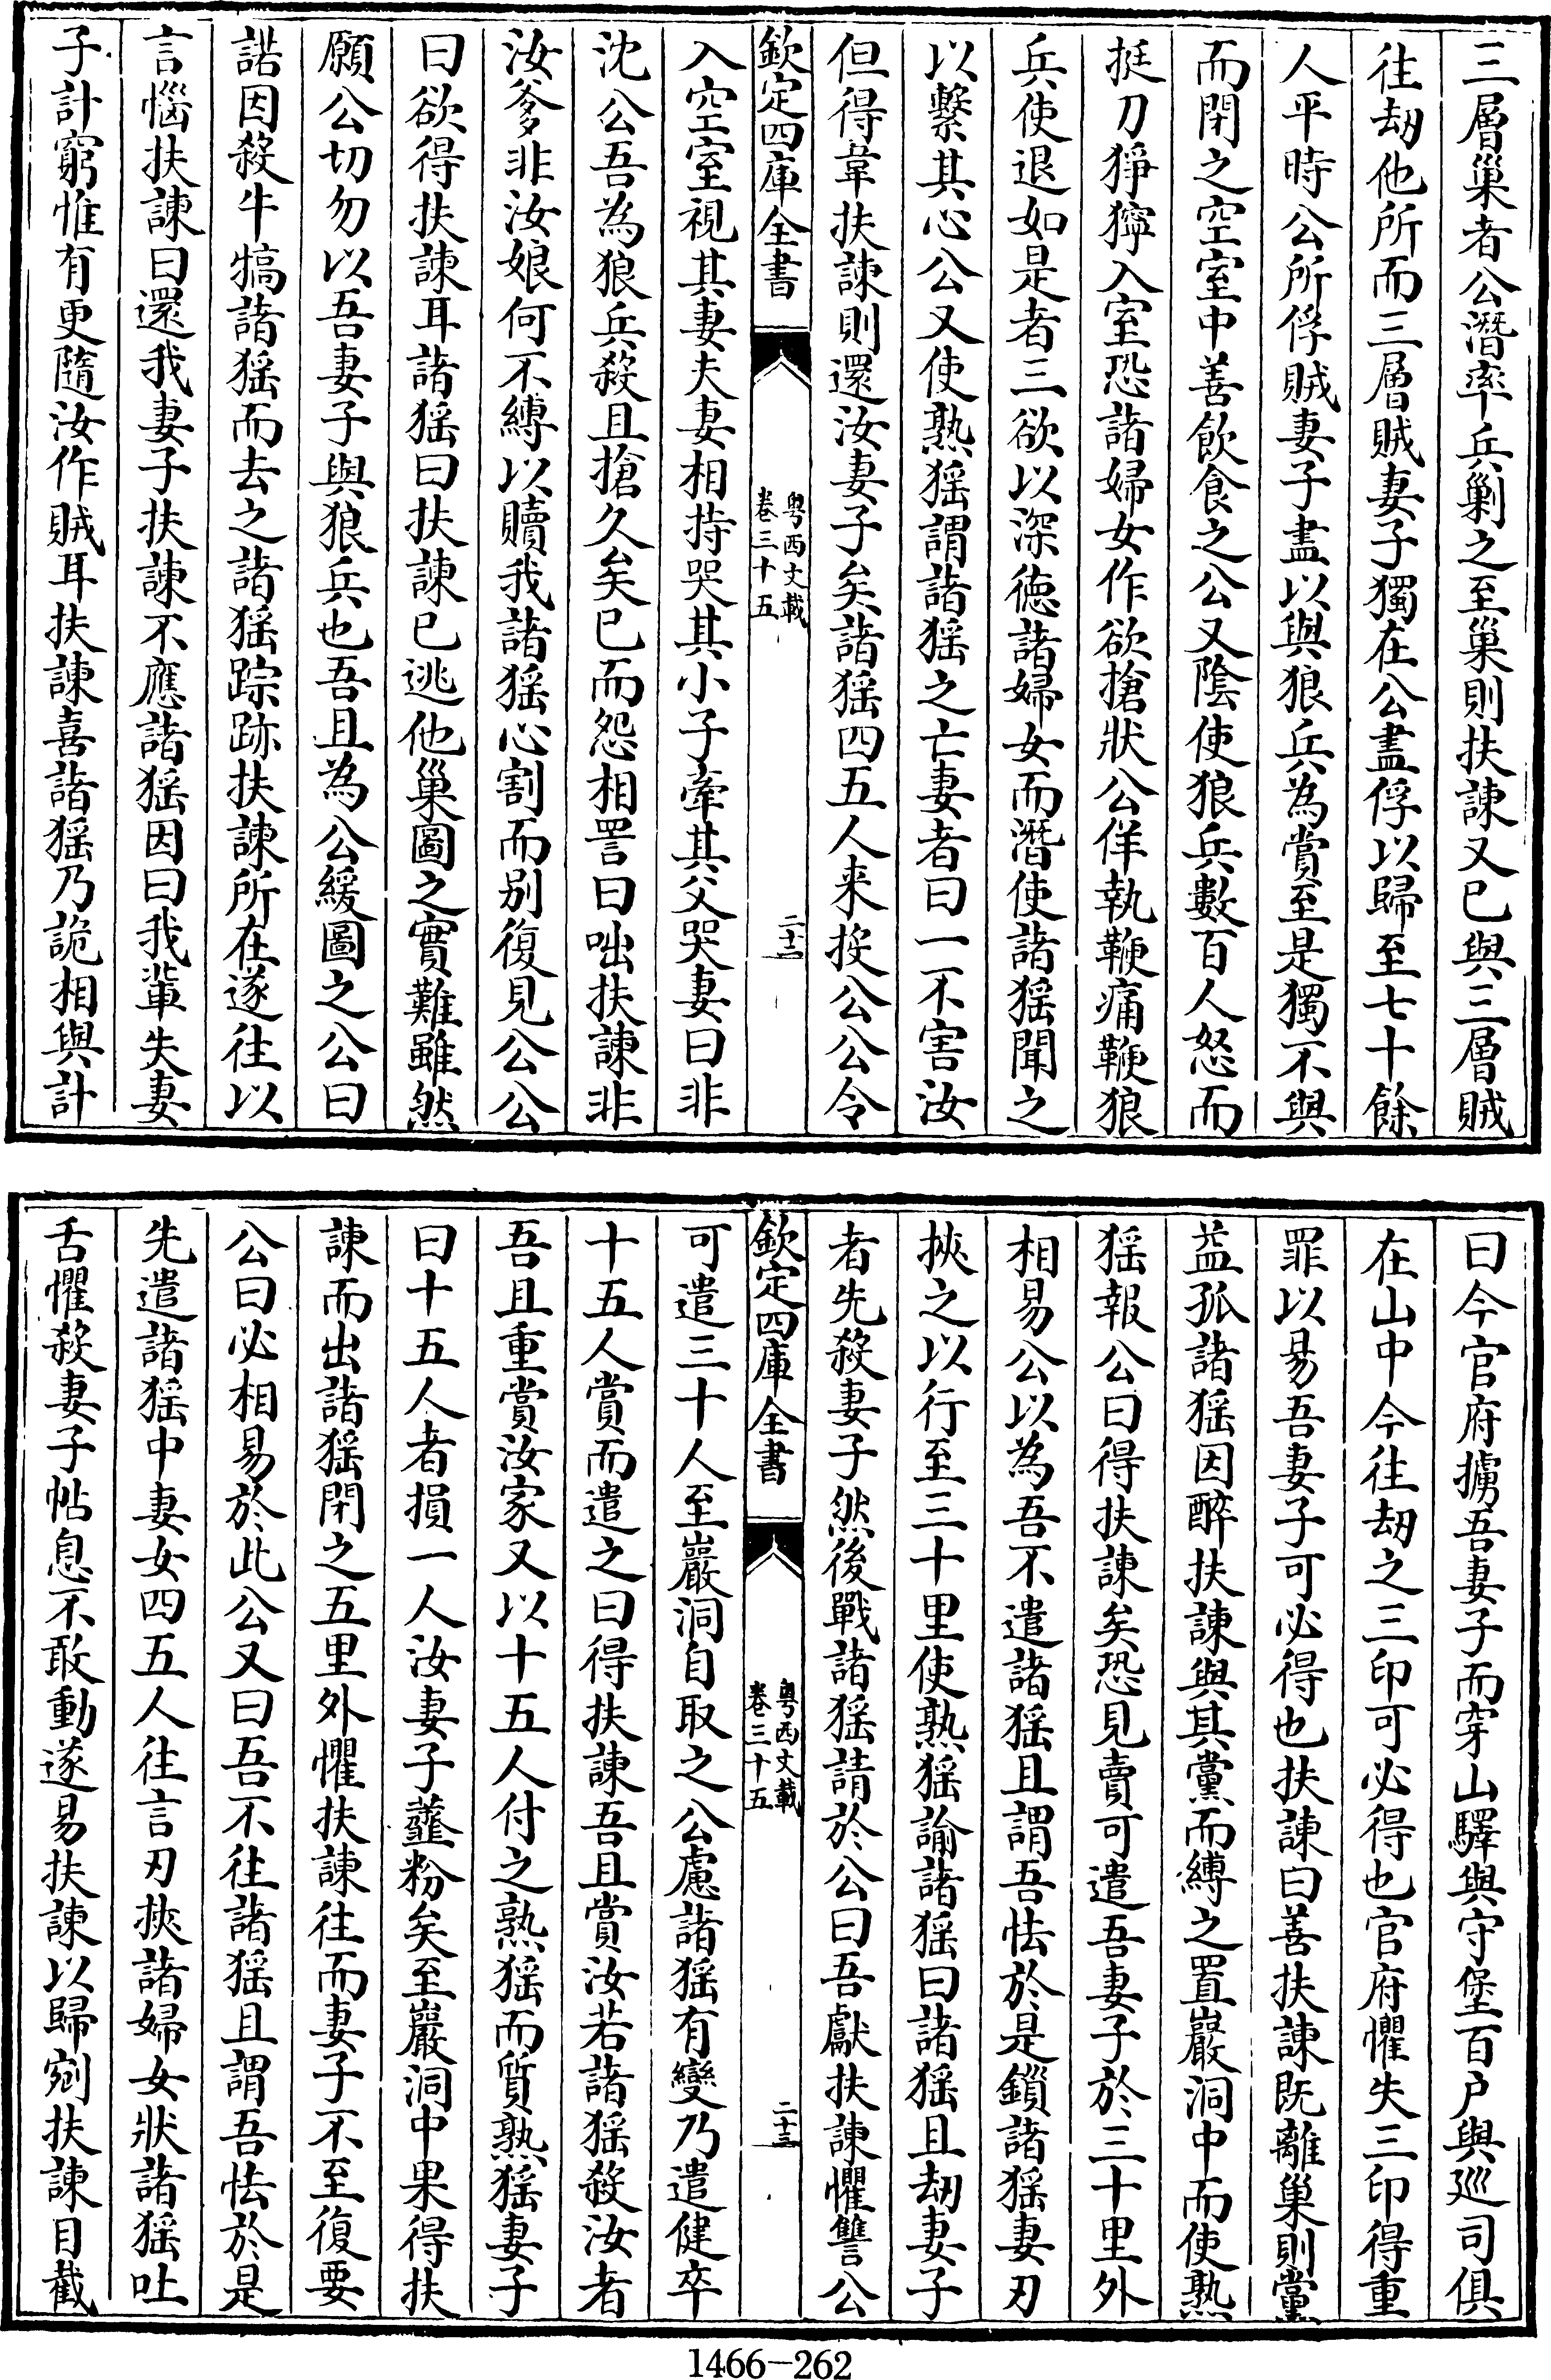 三層巢者公潛率兵剿之至巢則扶諫又已與三層賊
往刼他所而三層賊妻子獨在公盡俘以歸至七十餘
人平時公所俘賊妻子盡以與狼兵為賞至是獨不與
而閉之空室中善飲食之公又陰使狼兵數百人怒而
挺刀猙獰入室恐諸婦女作欲搶狀公佯執鞭痛鞭狼
兵使退如是者三欲以深徳諸婦女而潛使諸猺聞之
以繫其心公又使熟猺謂諸猺之亡妻者曰一不害汝
但得韋扶諫則還汝妻子矣諸猺四五人来投公公令
欽定四庫全書
粤西文載
卷三十五
二十二
入空室視其妻夫妻相持哭其小子牽其父哭妻曰非
沈公吾為狼兵殺且搶久矣已而怨相詈曰咄扶諫非
汝爹非汝娘何不縛以贖我諸猺心割而别復見公公
曰欲得扶諫耳諸猺曰扶諫已逃他巢圖之實難雖然
願公切勿以吾妻子與狼兵也吾且為公緩圖之公曰
諾因殺牛犒諸猺而去之諸猺踪跡扶諫所在遂往以
言惱扶諫曰還我妻子扶諫不應諸猺因曰我輩失妻
子計窮惟有更隨汝作賊耳扶諫喜諸猺乃詭相與計
曰今官府擄吾妻子而穿山驛與守堡百户與廵司俱
在山中今往刼之三印可必得也官府懼失三印得重
罪以易吾妻子可必得也扶諫曰善扶諫既離巢則黨
益孤諸猺因醉扶諫與其黨而縛之置巖洞中而使熟
猺報公曰得扶諫矣恐見賣可遣吾妻子於三十里外
相易公以為吾不遣諸猺且謂吾怯於是鎖諸猺妻刃
挾之以行至三十里使熟猺諭諸猺曰諸猺且刼妻子
者先殺妻子然後戰諸猺請於公曰吾獻扶諫懼讐公
欽定四庫全書
粤西文載
卷三十五
二十三
可遣三十人至巖洞自取之公慮諸猺有變乃遣健卒
十五人賞而遣之曰得扶諫吾且賞汝若諸猺殺汝者
吾且重賞汝家又以十五人付之熟猺而質熟猺妻子
曰十五人者損一人汝妻子虀粉矣至巖洞中果得扶
諫而出諸猺閉之五里外懼扶諫往而妻子不至復要
公曰必相易於此公又曰吾不往諸猺且謂吾怯於是
先遣諸猺中妻女四五人往言刃挾諸婦女狀諸猺吐
舌懼殺妻子帖息不敢動遂易扶諫以歸剜扶諫目截
1466-262